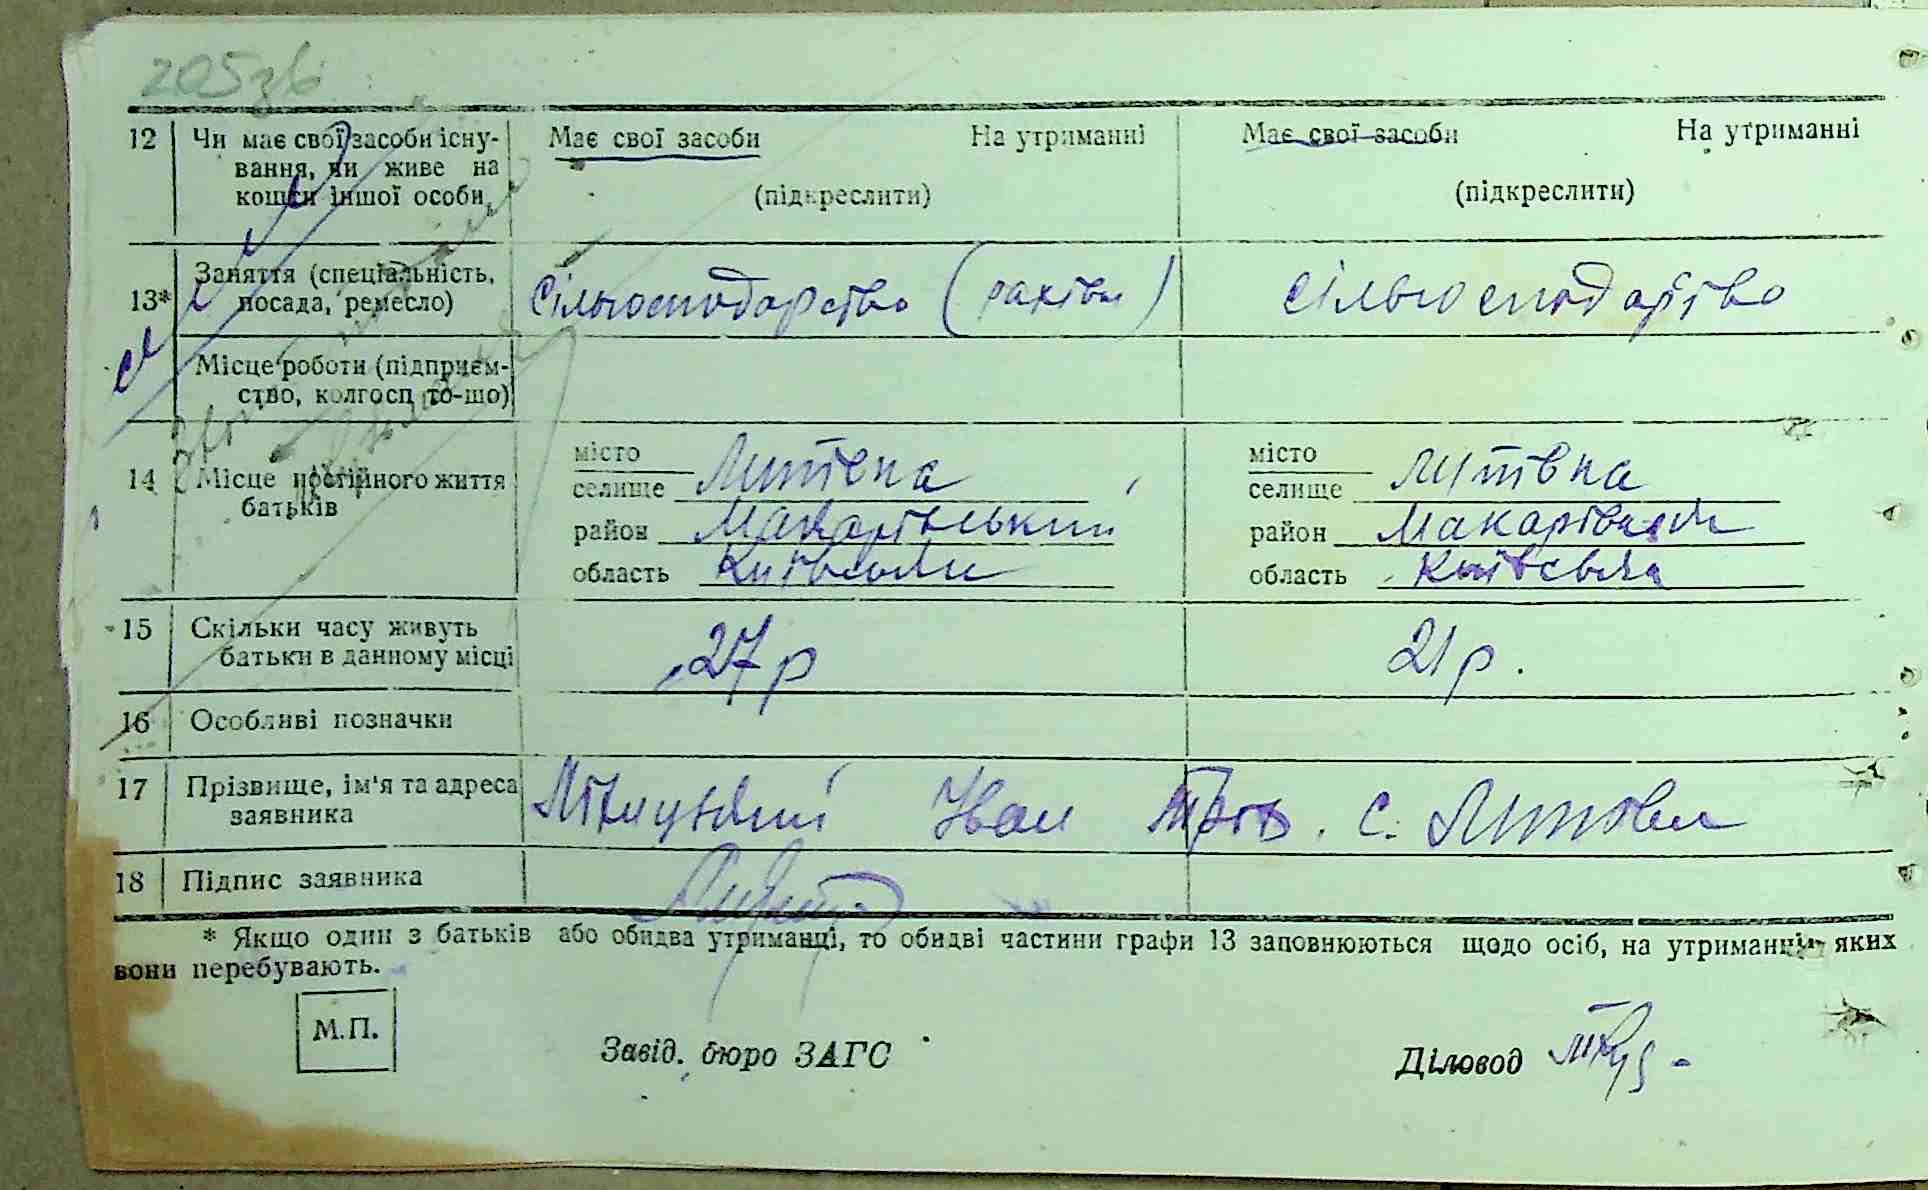 205зв
12 Чи має свої засоби існу- Має свої засоби На утриманні Має свої засоби На утриманні
вання, чи живе на
кошти іншої особи (підкреслити) (підкреслити)
13* Заняття (спеціальність,
посада, ремесло) сільгосподарство ( ) сільгосподарство
Місце роботи (підприєм-
ство, колгосп то-що)
14 Місце постійного життя
батьків
місто
селище Липівка
район Макарівський
область Київської
місто
селище Липівка
район Макарівський
область Київська
15 Скільки часу живуть
батьки в данному місці 27 р 21 р.
16 Особливі позначки
17 Прізвище, ім'я та адреса
заявника Іван с. Липівка
18 Підпис заявника
* Якщо один з батьків або обидва утриманці, то обидві частини графи 13 заповнюються щодо осіб, на утриманні яких
вони перебувають.
М.П.
Завід. бюро ЗАГС
Діловод